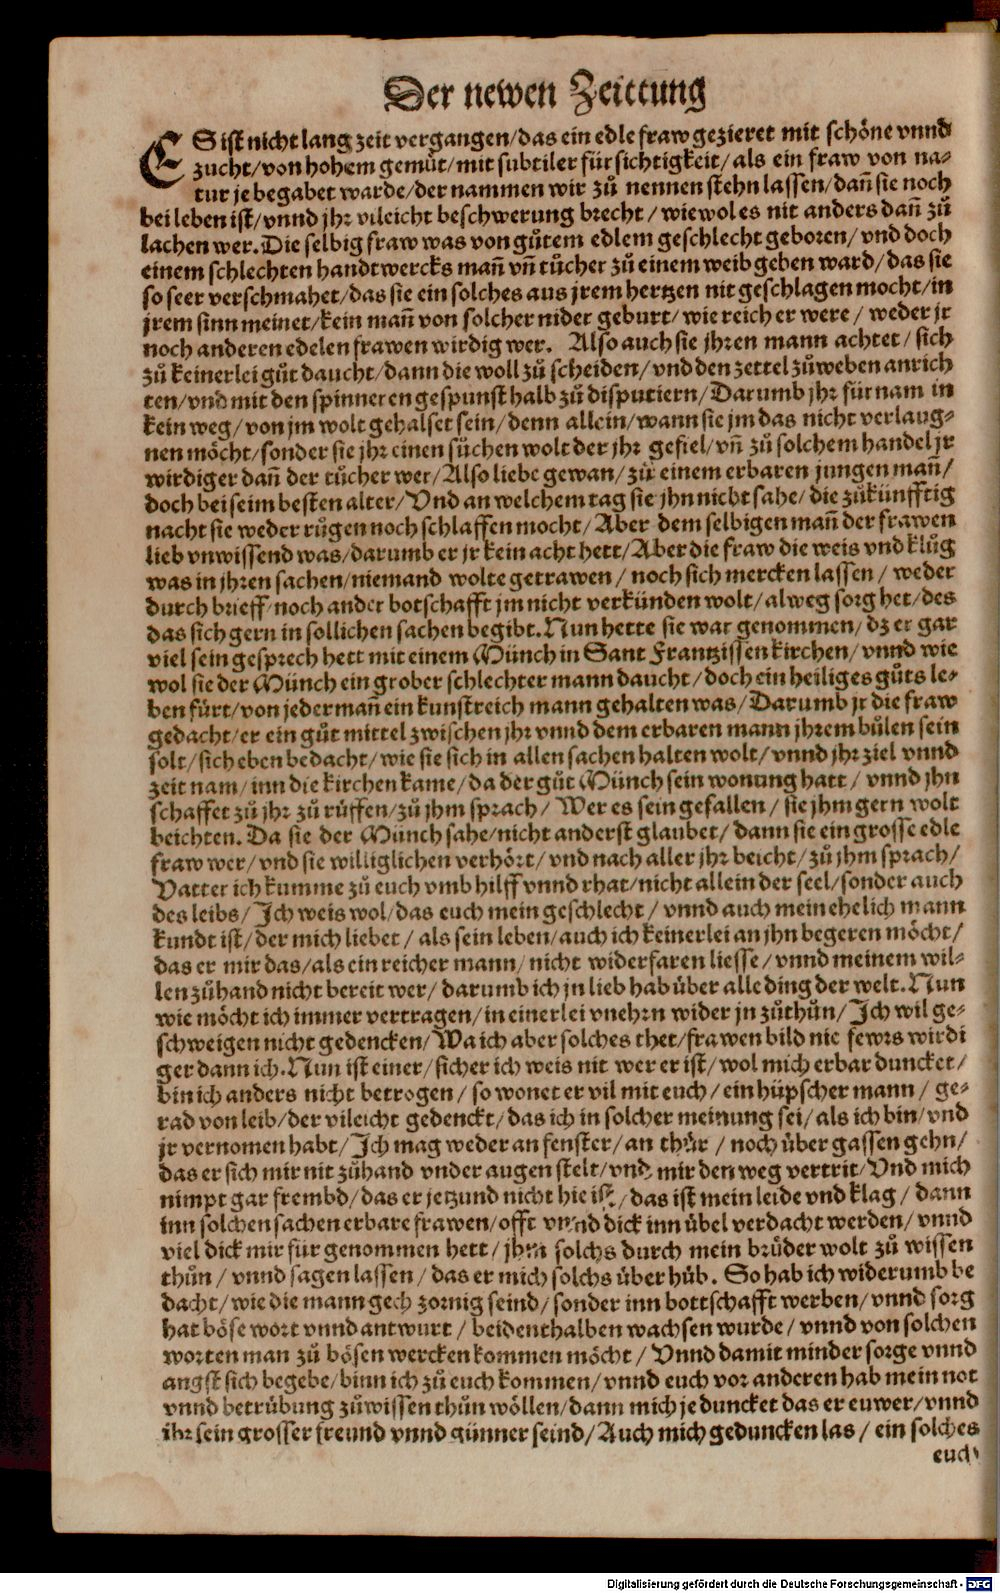 Der newen Zeittung
ES ist nicht lang zeit vergangen/das ein edle fraw gezieret mit schöne vnnd
zucht/von hohem gemuͤt/mit subtiler fürsichtigkeit/als ein fraw von na-
tur je begabet warde/der nammen wir zuͦ nennen stehn lassen/dañ sie noch
bei leben ist/vnnd jhr vileicht beschwerung brecht/wiewol es nit anders dañ zuͦ
lachen wer. Die selbig fraw was von guͦtem edlem geschlecht geboren/vnd doch
einem schlechten handtwercks mañ vñ tuͦcher zuͦ einem weib geben ward/das sie
so seer verschmahet/das sie ein solches aus jrem hertzen nit geschlagen mocht/in
jrem sinn meinet/kein mañ von solcher nider geburt/wie reich er were/weder jr
noch anderen edelen frawen wirdig wer. Also auch sie jhren mann achtet/sich
zuͦ keinerlei guͦt daucht/dann die woll zuͦ scheiden/vnd den zettel zuͦweben anrich
ten/vnd mit den spinneren gespunst halb zuͦ disputiern/Darumb jhr für nam in
kein weg/von jm wolt gehalset sein/denn allein/wann sie jm das nicht verlaug-
nen möcht/sonder sie jhr einen suͦchen wolt der jhr gefiel/vñ zuͦ solchem handel jr
wirdiger dañ der tuͦcher wer/Also liebe gewan/zuͦ einem erbaren jungen mañ/
doch bei seim besten alter/Vnd an welchem tag sie jhn nicht sahe/die zuͦkünfftig
nacht sie weder ruͦgen noch schlaffen mocht/Aber dem selbigen mañ der frawen
lieb vnwissend was/darumb er jr kein acht hett/Aber die fraw die weis vnd kluͦg
was in jhren sachen/niemand wolte getrawen/noch sich mercken lassen/weder
durch brieff/noch ander botschafft jm nicht verkünden wolt/alweg sorg het/des
das sich gern in sollichen sachen begibt. Nun hette sie war genommen/dz er gar
viel sein gesprech hett mit einem Münch in Sant Frantzissen kirchen/vnnd wie
wol sie der Münch ein grober schlechter mann daucht/doch ein heiliges guͦts le-
ben fürt/von jederman̄ ein kunstreich mann gehalten was/Darumb jr die fraw
gedacht/er ein guͦt mittel zwischen jhr vnnd dem erbaren mann jhrem buͦlen sein
solt/sich eben bedacht/wie sie sich in allen sachen halten wolt/vnnd jhr ziel vnnd
zeit nam/inn die kirchen kame/da der guͦt Münch sein wonung hatt/vnnd jhn
schaffet zuͦ jhr zuͦ ruͦffen/zuͦ jhm sprach/Wer es sein gefallen/sie jhm gern wolt
beichten. Da sie der Münch sahe/nicht anderst glaubet/dann sie ein grosse edle
fraw wer/vnd sie williglichen verhört/vnd nach aller jhr beicht/zuͦ jhm sprach/
Vatter ich kumme zuͦ euch vmb hilff vnnd rhat/nicht allein der seel/sonder auch
des leibs/Ich weis wol/das euch mein geschlecht/vnnd auch mein ehelich mann
kundt ist/der mich liebet/als sein leben/auch ich keinerlei an jhn begeren möcht/
das er mir das/als ein reicher mann/nicht widerfaren liesse/vnnd meinem wil-
len zuͦhand nicht bereit wer/darumb ich jn lieb hab über alle ding der welt. Nun
wie möcht ich immer vertragen/in einerlei vnehrn wider jn zuͦthuͦn/Ich wil ge-
schweigen nicht gedencken/Wa ich aber solches thet/frawen bild nie fewrs wirdi
ger dann ich. Nun ist einer/sicher ich weis nit wer er ist/wol mich erbar duncket/
bin ich anders nicht betrogen/so wonet er vil mit euch/ein hüpscher mann/ge-
rad von leib/der vileicht gedenckt/das ich in solcher meinung sei/als ich bin/vnd
jr vernomen habt/Ich mag weder an fenster/an thür/noch über gassen gehn/
das er sich mir nit zuͦhand vnder augen stelt/vnd mir den weg vertrit/Vnd mich
nimpt gar frembd/das er jetzund nicht hie ist/das ist mein leide vnd klag/dann
inn solchen sachen erbare frawen/offt vnnd dick inn übel verdacht werden/vnnd
viel dick mir für genommen hett/jhm solchs durch mein bruͤder wolt zuͦ wissen
thuͦn/vnnd sagen lassen/das er mich solchs über huͦb. So hab ich widerumb be
dacht/wie die mann gech zornig seind/sonder inn bottschafft werben/vnnd sorg
hat böse wort vnnd antwurt/beidenthalben wachsen wurde/vnnd von solchen
worten man zuͦ bösen wercken kommen möcht/Vnnd damit minder sorge vnnd
angst sich begebe/binn ich zuͦ euch kommen/vnnd euch vor anderen hab mein not
vnnd betruͤbung zuͦwissen thuͦn wöllen/dann mich je duncket das er euwer/vnnd
ihr sein grosser freund vnnd günner seind/Auch mich geduncken las/ein solches
euch
Digitalisierung gefördert durch die Deutsche Forschungsgemeinschaft - DFG